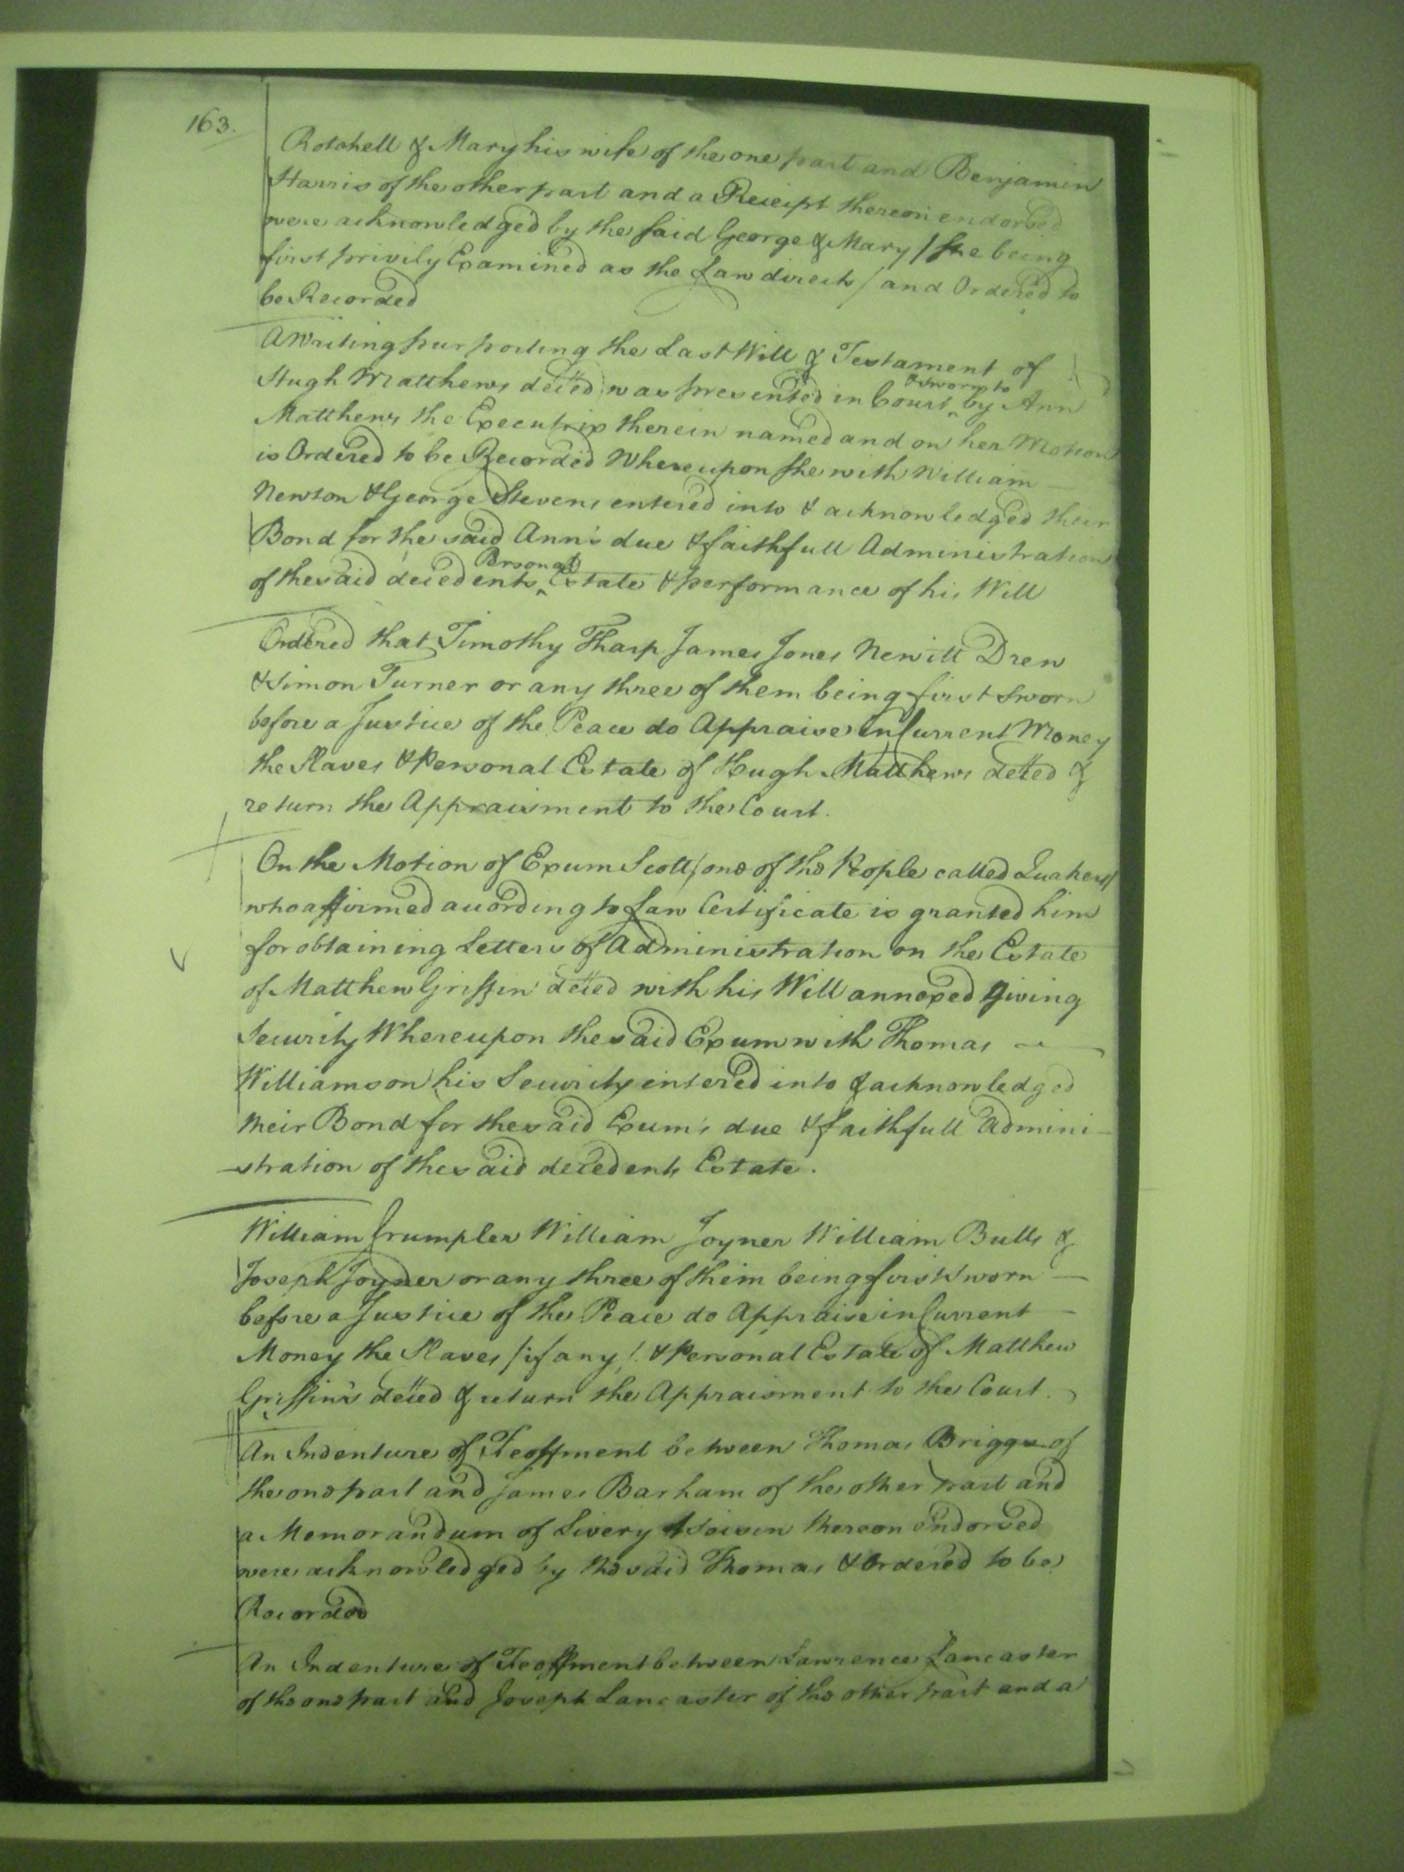 163.
Rotchell & Mary his wife of the one part and Benjamin
Harris of the other part and a Receipt thereon endorsed
were acknowledged by the said George & Mary / she being
first privily Examined as the Law directs / and Ordered to
be Recorded
A Writing purporting the Last Will & Testament of
Hugh Matthews deced was presented in Court & sworn to by Ann
Matthews the Executrix therein named and on her Motion
is Ordered to be Recorded Whereupon she with William
Newton & George Stevens entered into & acknowledged their
Bond for the said Ann's due & faithfull Administration
of the said decedents Personal Estate & performance of his Will
Ordered that Timothy Tharp James Jones Newitt Drew
& Simon Turner or any three of them being first sworn
before a Justice of the Peace do Appraise in Current Money
the Slaves & Personal Estate of Hugh Matthews deced &
return the Appraisment to the Court.
On the Motion of Exum Scott / one of the People called Quakers /
who affirmed according to Law Certificate is granted him
for obtaining Letters of Administration on the Estate
of Matthew Griffin deced with his Will annexed giving
Security Whereupon the said Exum with Thomas
Williamson his Security entered into & acknowledged
their Bond for the said Exum's due & faithfull Admini-
-stration of the said decedents Estate.
William Crumpler William Joyner William Bulls &
Joseph Joyner or any three of them being first sworn
before a Justice of the Peace do Appraise in Current
Money the Slaves / if any / & Personal Estate of Matthew
Griffin's deced & return the Appraisment to the Court.
An Indenture of Feoffment between Thomas Briggs of
the one part and James Barham of the other part and
a Memorandum of Livery & Seisin thereon endorsed
were acknowledged by the said Thomas & Ordered to be
Recorded
An Indenture of Feoffment between Lawrence Lancaster
of the one part and Joseph Lancaster of the other part and a